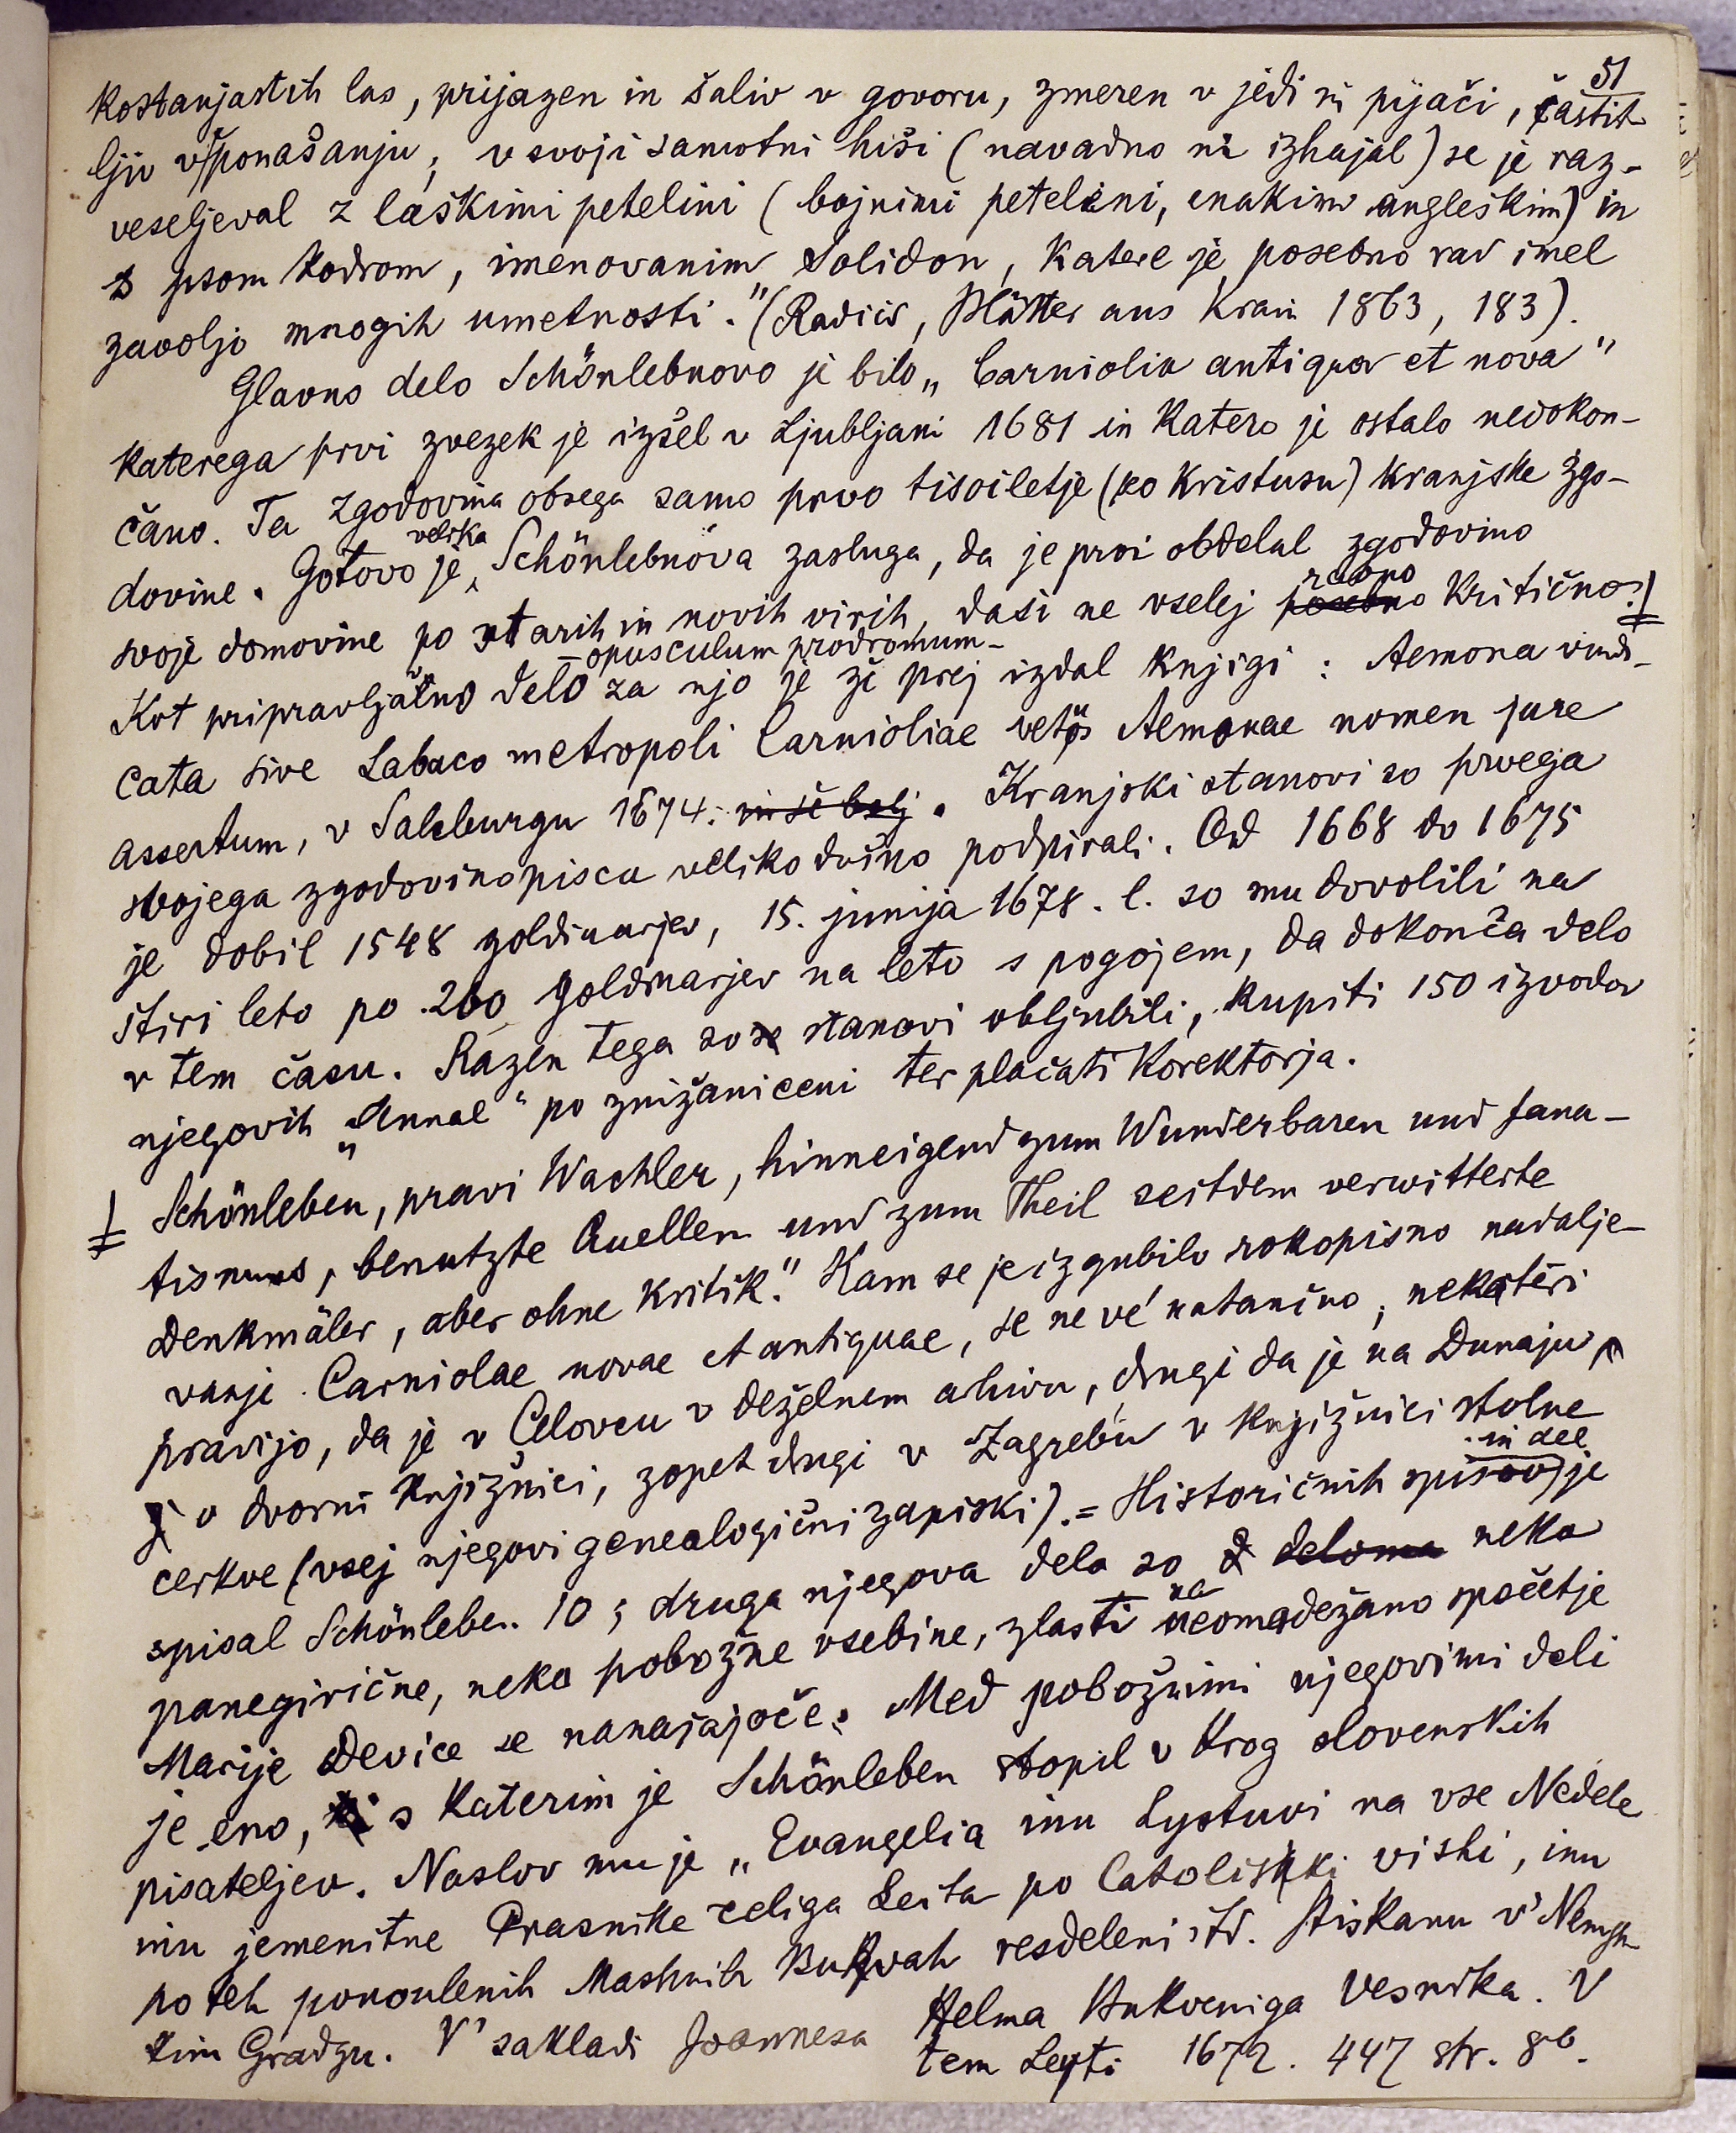 51
kostanjastih las, prijazen in šaliv v govoru, zmeren v jedi in pijači, častit-
ljiv v ponašanju; v svoji samotni hiši (navadno ni izhajal) se je raz-
veseljeval z laškimi petelini (bojnimi petelini, enakim angleškim) in
s psom kodrom, imenovanim Solidon, katere je posebno rad imel
zavoljo mnogih umetnosti." (Radics, Blätter aus Krain 1863, 183).
Glavno delo Schönlebnovo je bilo „Carniolia antiqua et nova"
katerega prvi zvezek je izšel v Ljubljani 1681 in katero je ostalo nedokon-
čano. Ta zgodovina obsega samo prvo tisočletje (po Kristusu) kranjske zgo-
dovine. Gotovo je velika Schönlebnova zasluga, da je prvi obdelal zgodovino
svoje domovine po starih in novih virih, daši ne vselej posebno ravno kritično.
Kot pripravljalno delo – opusculum prodromum – za njo je že prej izdal knjigi: Aemona vindi-
cata sive Labaco metropoli Carnioliae vetus Aemonae nomen jure
assertum, v Salcburgu 1674. in še bolj. Kranjski stanovi so prvega
svojega zgodovinopisca velikodušno podpirali. Od 1668 do 1675
je dobil 1548 goldinarjev, 15. junija 1678. l. so mu dovolili na
štiri leto po 200 goldinarjev na leto s pogojem, da dokonča delo
v tem času. Razen tega so se stanovi obljubili, kupiti 150 izvodov
njegovih „Annal" po znižani ceni ter plačati korektorja.
Schönleben, pravi Wachler, hinneigend zum Wunderbaren und fana-
tismus, benutzte Quellen und zum Theil seitdem verwitterte
Denkmäler, aber ohne Kritik." Kam se je izgubilo rokopisno nadalje-
vanje Carniolae novae et antiquae, se ne vé natančno; nekateri
pravijo, da je v Celovcu v deželnem ahivu, drugi da je na Dunaju
v dvorni knjižnici, zopet drugi v Zagrebu v knjižnici stolne
cerkve (vsej njegovi genealogični zapiski). = Historičnih spisov in del je
spisal Schönleben 10; druga njegova dela so deloma neka
panegirične, neka pobožne vsebine, zlasti na neomadežano spočetje
Marije Device se nanašajoče. Med pobožnimi njegovimi deli
je eno, ki s katerim je Schönleben stopil v krog slovenskih
pisateljev. Naslov mu je „Evangelia inu Lystuvi na vse Nedele
inu jemenitne Prasnike celiga Leita po Catoliski vishi, inu
po teh ponoulenih Mashnih Bukvah resdeleni itd. Stiskanu v' Nemsh-
kim Gradzu. V' sakladi Joannesa Helma Bukveniga Vesnika. V
tem Leyti 1672. 447 str. 8º.